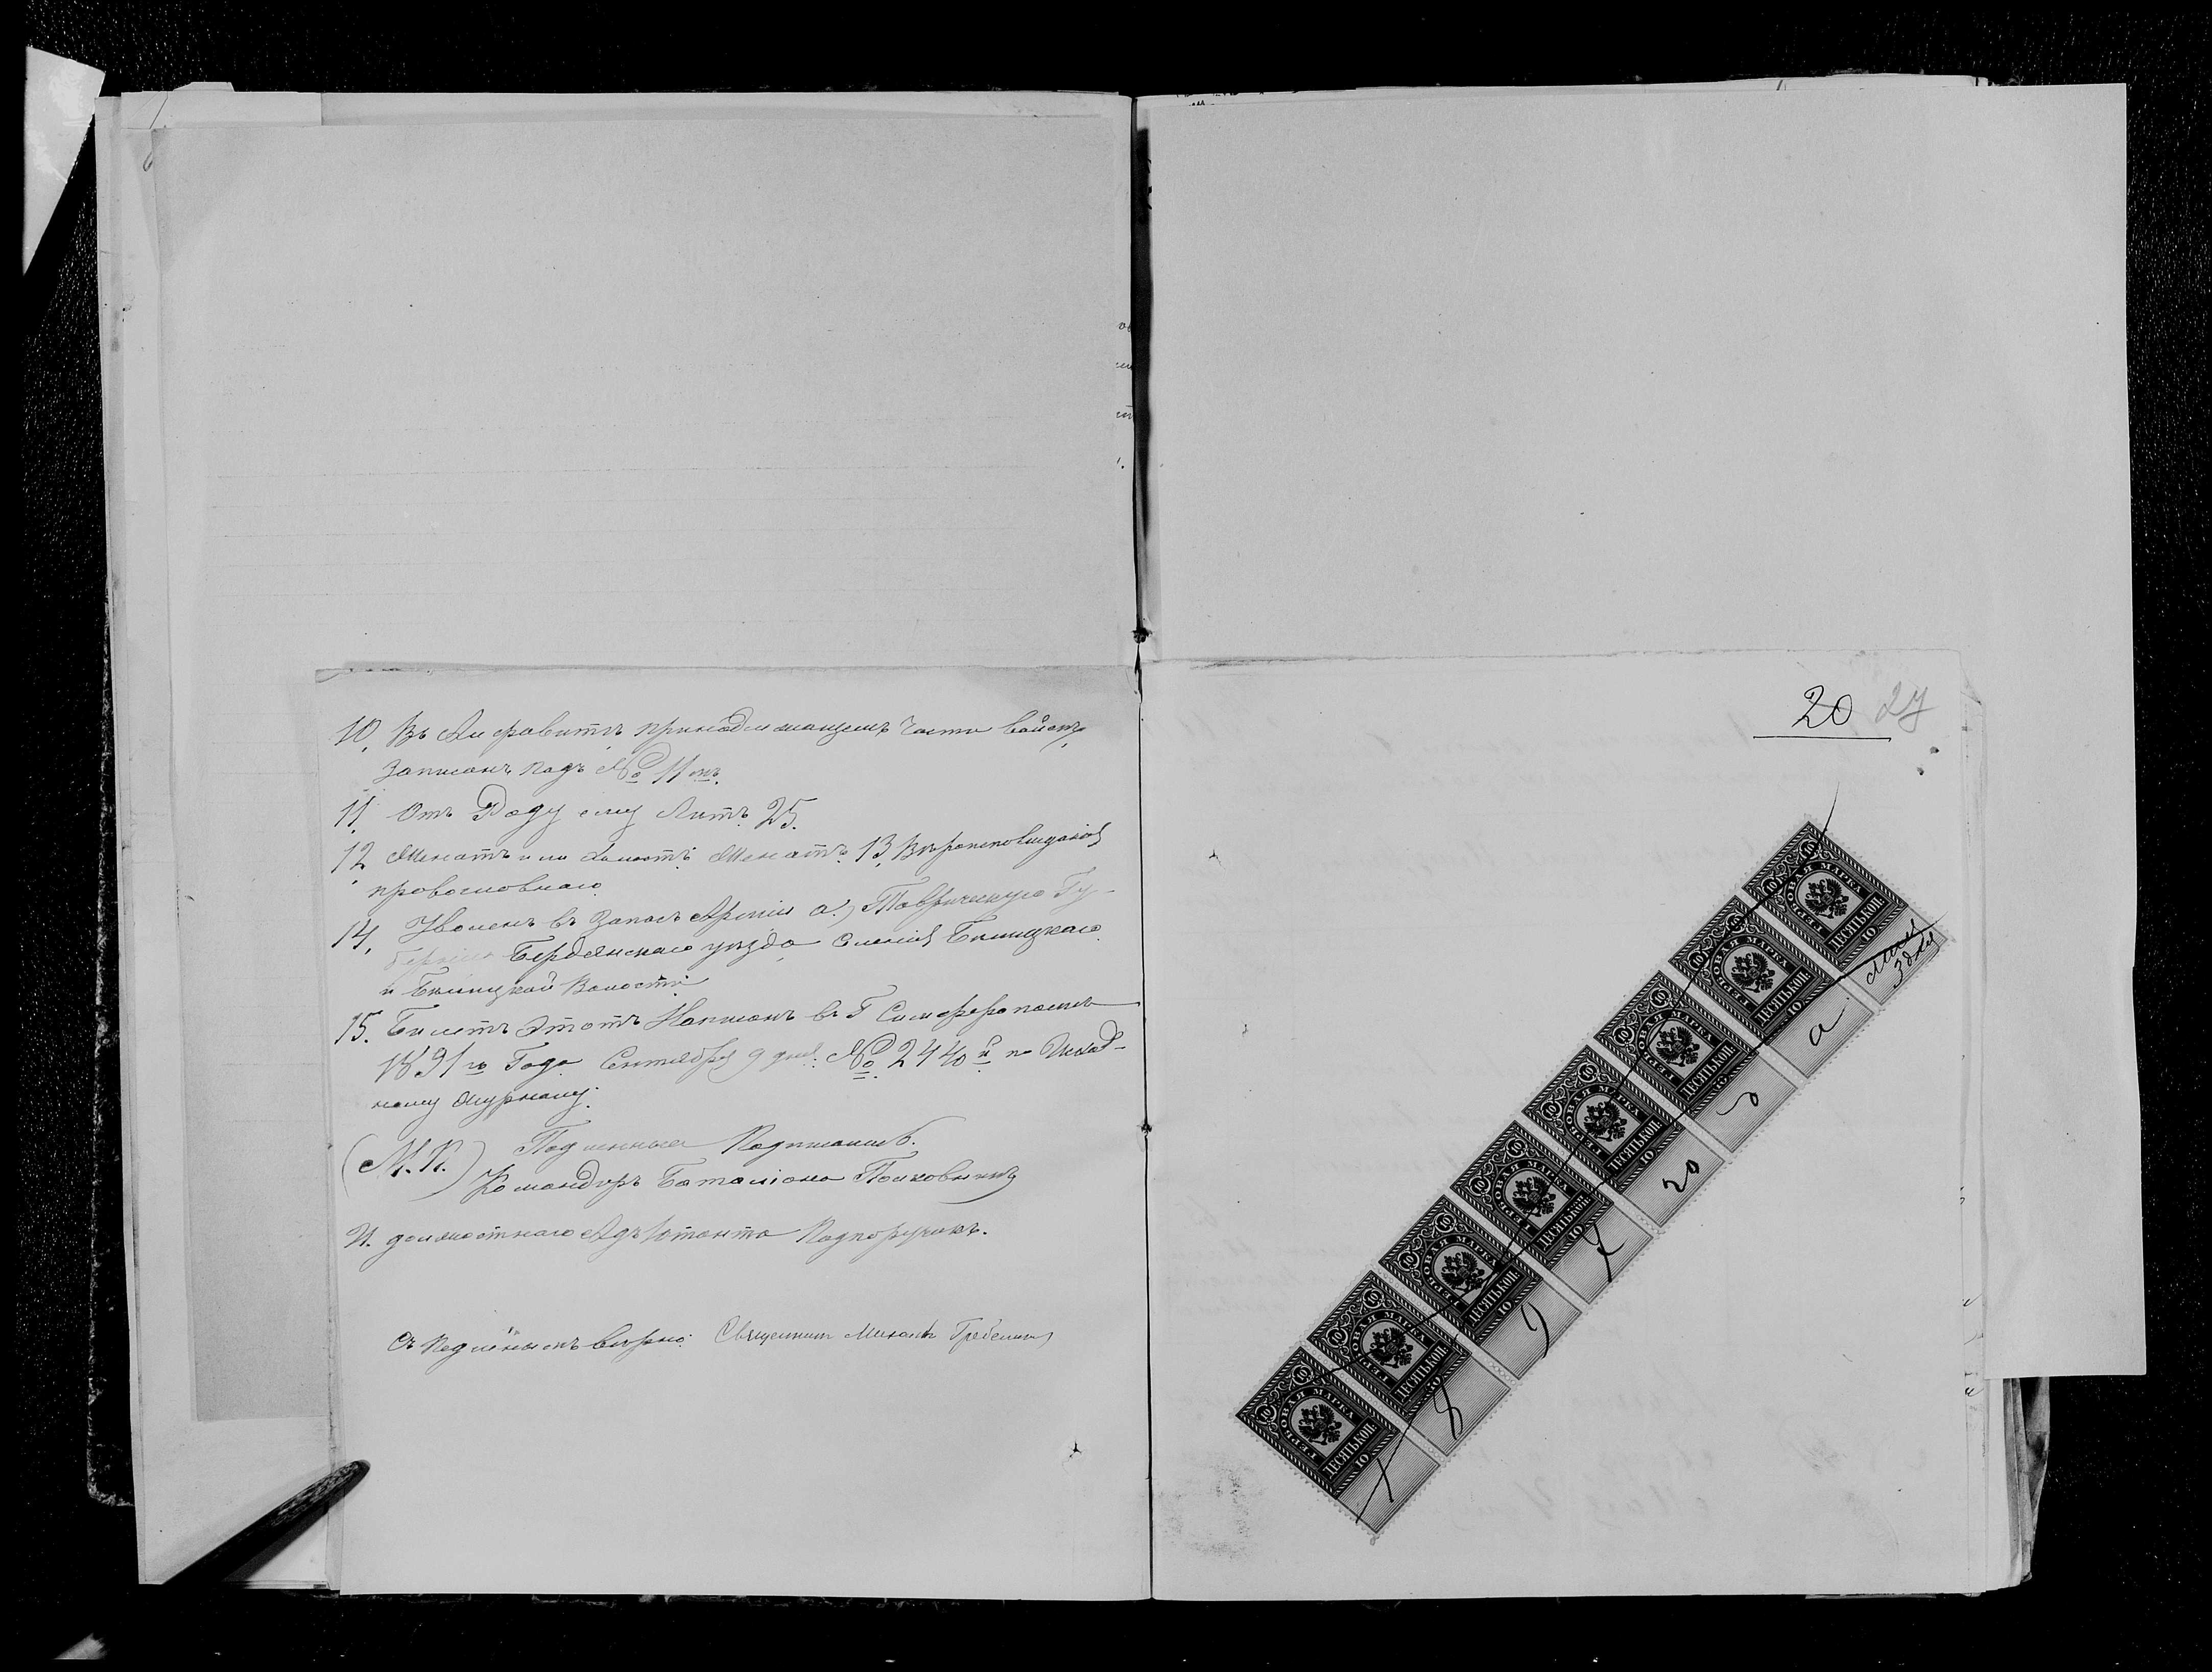 10. Въ Алфавитѣ принадлежащемъ части войскъ
Записанъ подъ № 11мъ.
11. Отъ Роду ему Лѣтъ 25.
12. Женатъ или холостъ: Женатъ. 13. Вѣроисповѣданія
православнаго.
14. Уволенъ въ Запасъ Арміи а.) Таврическую Гу-
бернію Бердянскаго уѣзда Селенія
и Волости
15. Билетъ Этотъ Написанъ въ Г Симферополѣ
1891го Года Сентября 9 дня: № 2440й по Исход-
ному Журналу.
(М. П.) Подлинныя Подписали.
Командиръ Баталіона Полковникъ
И. должностнаго Адъютанта Подпоручикъ.
Съ Подлиннымъ вѣрно: Священникъ Михаилъ
20 27
ГЕРБОВАЯ МАРКА
ДЕСЯТЬ КОП.
10
ГЕРБОВАЯ МАРКА
ДЕСЯТЬ КОП.
10
ГЕРБОВАЯ МАРКА
ДЕСЯТЬ КОП.
10
ГЕРБОВАЯ МАРКА
ДЕСЯТЬ КОП.
10
ГЕРБОВАЯ МАРКА
ДЕСЯТЬ КОП.
10
ГЕРБОВАЯ МАРКА
ДЕСЯТЬ КОП.
10
ГЕРБОВАЯ МАРКА
ДЕСЯТЬ КОП.
10
ГЕРБОВАЯ МАРКА
ДЕСЯТЬ КОП.
10
3 дня